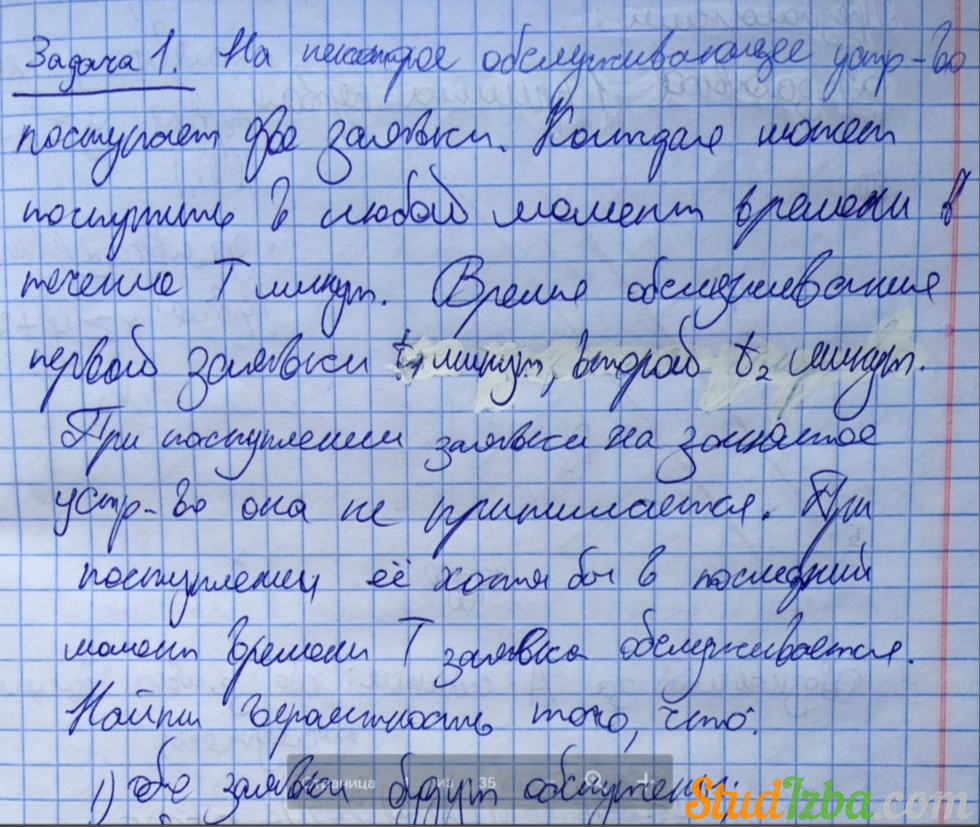 Задача 1. На некоторое обслуживающее устр-во
поступает две заявки. Каждая может
поступить в любой момент времени в
течение T минут. Время обслуживания
первой заявки t₁ минут, второй t₂ минут.
При поступлении заявки на занятое
устр-во она не принимается. При
поступлении её хотя бы в последний
момент времени T заявка обслуживается.
Найти вероятность того, что:
1) обе заявки будут обслужены;
Страница 1 из 35
StudIzba.com